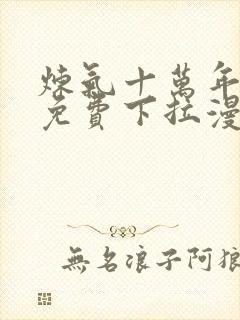 煉氣十萬年
免費下拉漫
無名浪子阿狼